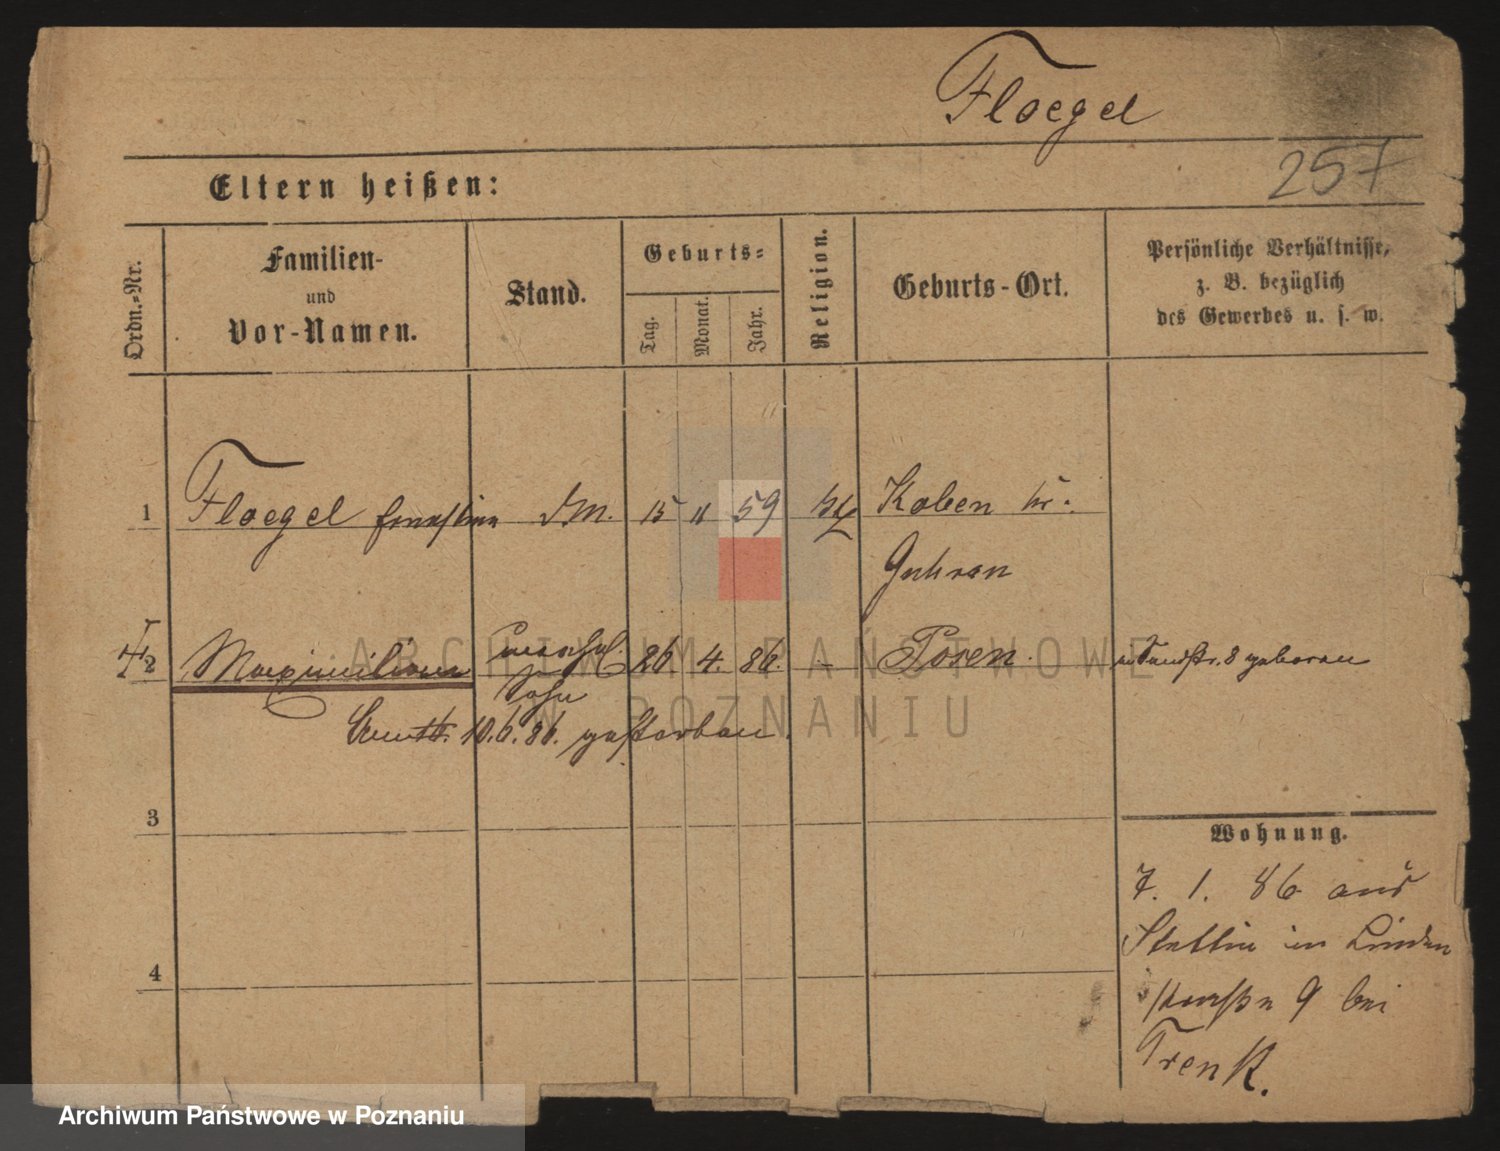 Floegel
257
Eltern heißen:
Ordn.-Nr.
Familien-
und
Vor-Namen.
Stand.
Geburts-
Tag.
Monat.
Jahr.
Religion.
Geburts-Ort.
Persönliche Verhältnisse,
z. B. bezüglich
des Gewerbes u. s. w.
1 Floegel Ernestine DM. 15 11 59 Koben Kr.
Guhrau
2 Maximilian unehel. 26. 4. 86. - Posen. 8 geboren
Sohn
10.6.86. gestorben.
3
4
Wohnung.
7. 1. 86 aus
Stettin in Linden
straße 9 bei
Trenk.
ARCHIWUM PAŃSTWOWE
W POZNANIU
Archiwum Państwowe w Poznaniu